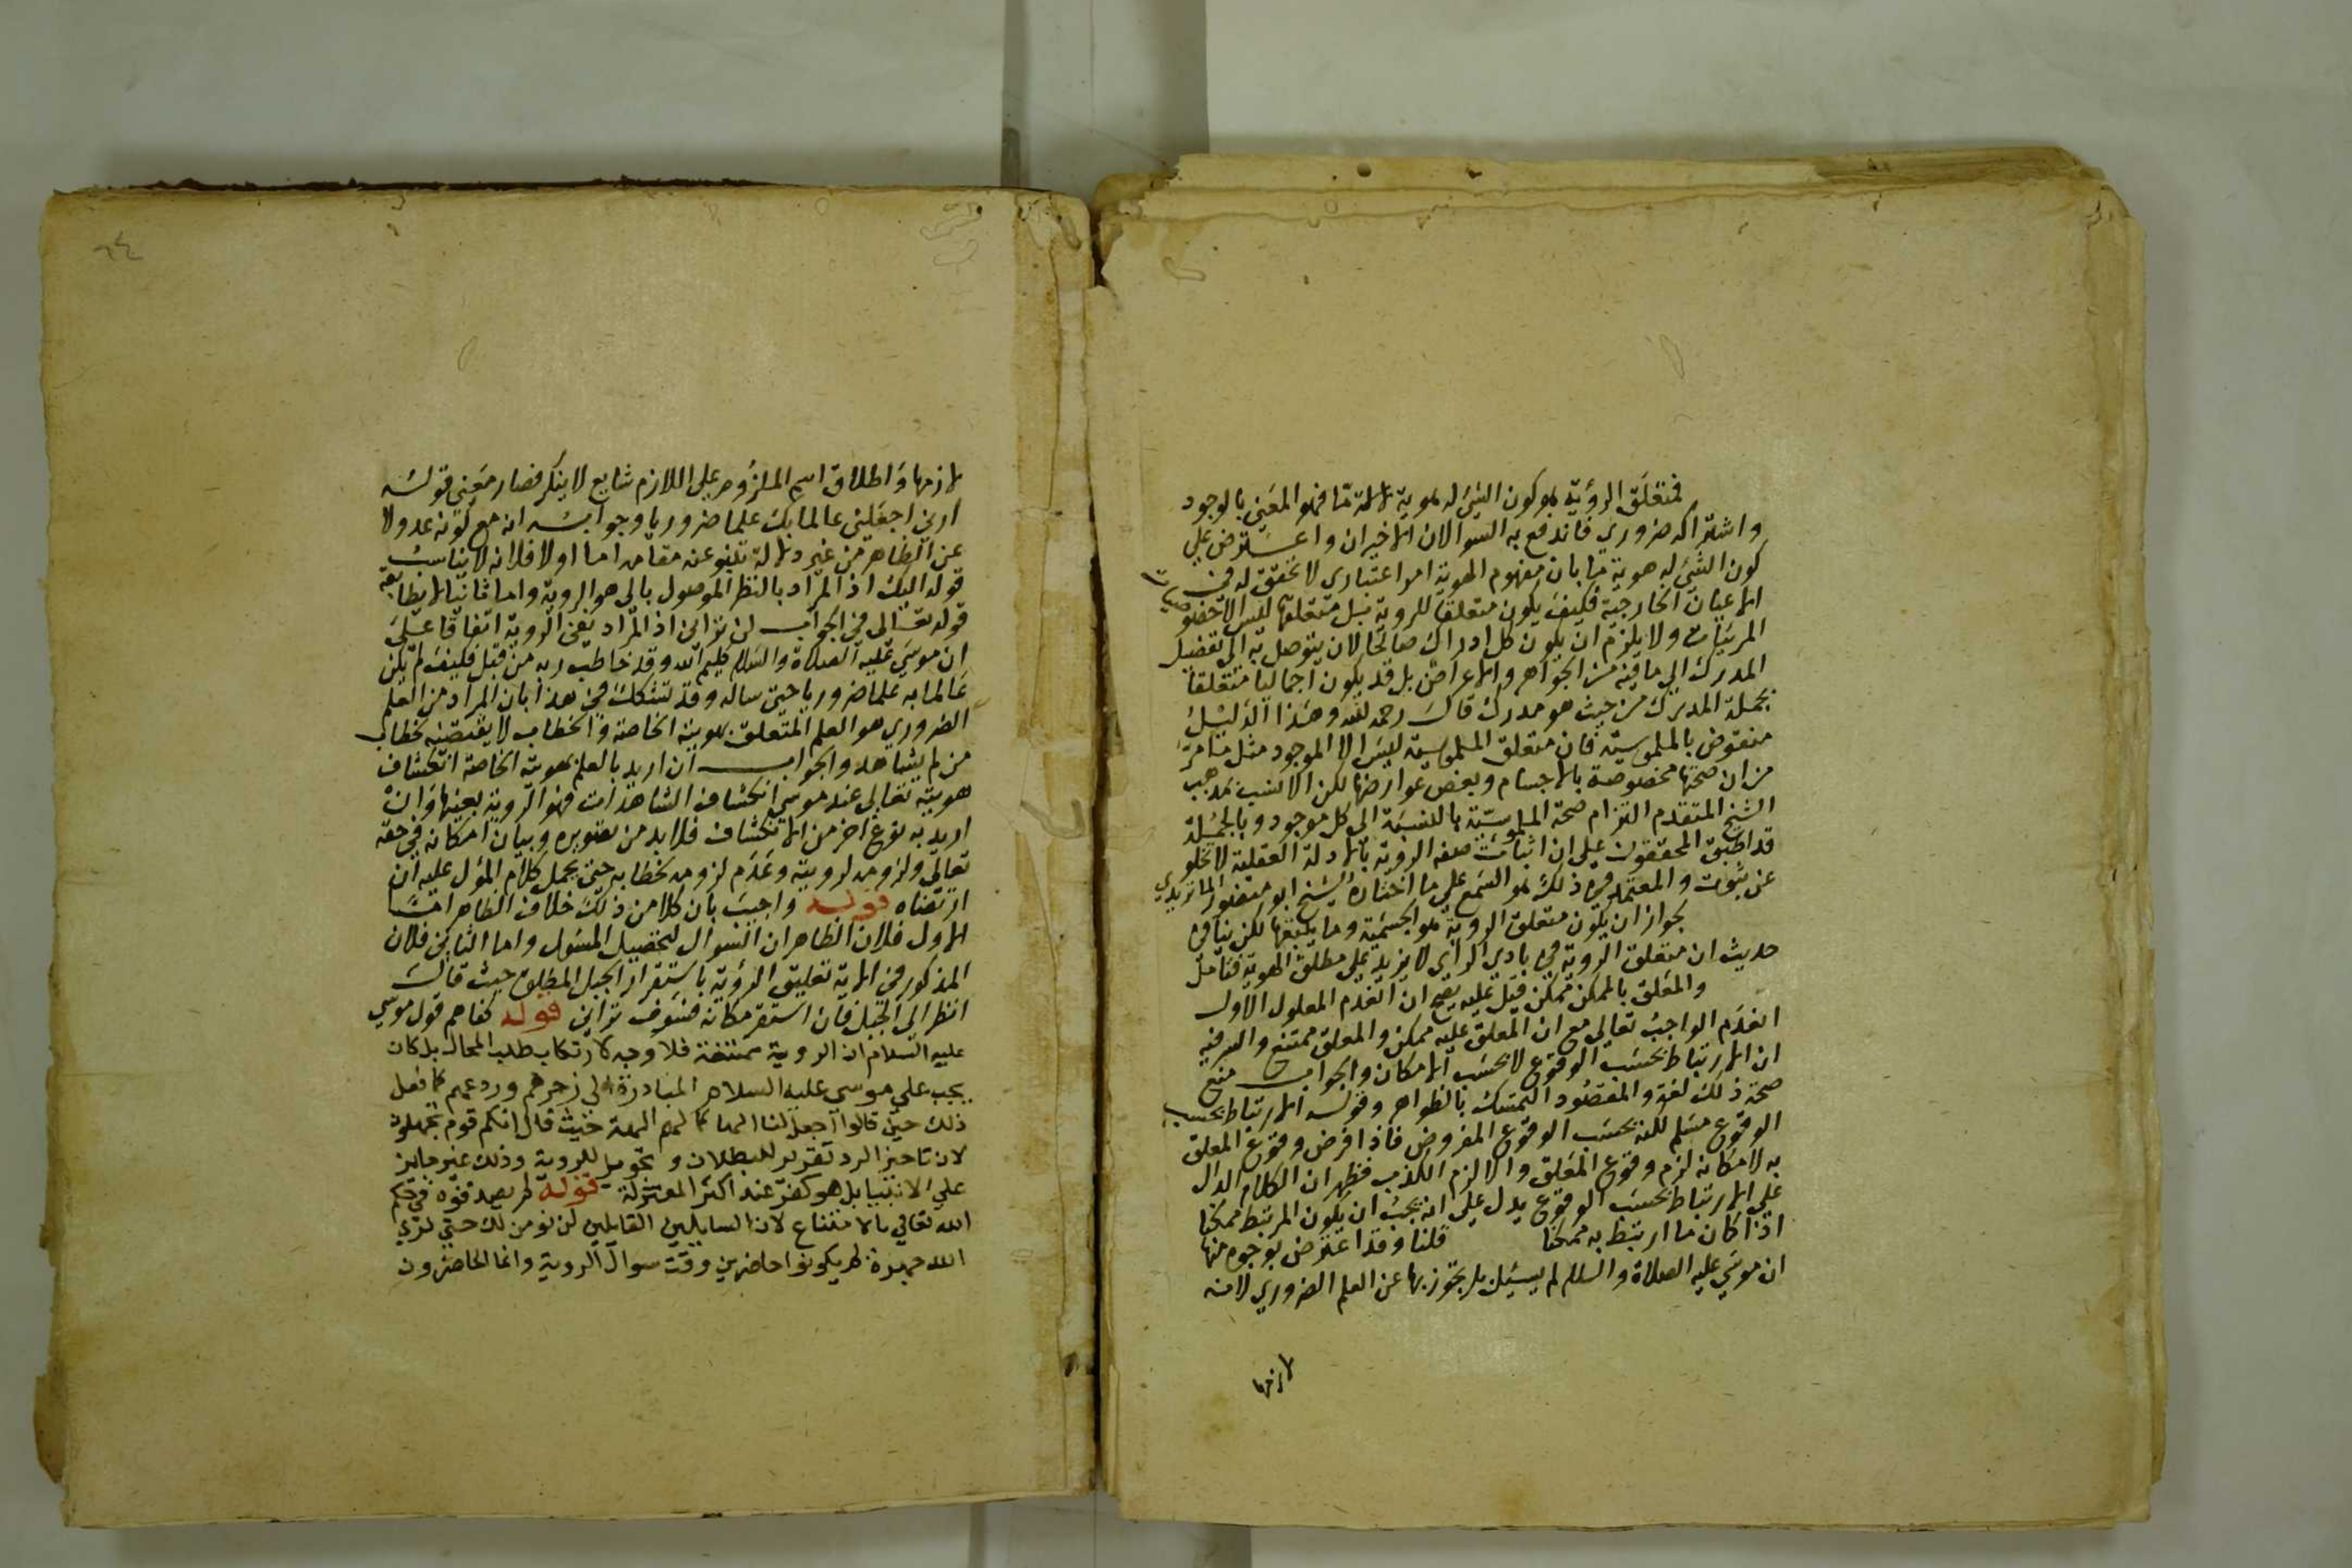 فمتعلق الرؤية هو كون الشئ له هوية ما فهو المعني بالوجود
واشتراكه ضروري فاندفع به السوالان الاخيران واعترض علي
كون الشئ له هوية ما بان مفهوم الهوية امر اعتباري لا تحقق له في
الاعيان الخارجية فكيف يكون متعلقا للروية بل متعلقها ليس الا خصوصيات
المرئيات ولا يلزم ان يكون كل ادراك صالحا لان يتوصل به الي تفصيل
المدرك الي ما فيه من الجواهر والاعراض بل قد يكون اجماليا متعلقا
بجملة المدرك من حيث هو مدرك قال رحمه الله وهذا الدليل
منقوض بالملموسية فان متعلق الملموسية ليس الا الموجود مثل ما مر
من ان صحتها مخصوصة بالاجسام وبعض عوارضها لكن الانسب بمذهب
الشيخ المتقدم التزام صحة الملموسية بالنسبة الي كل موجود وبالجملة
قد اطبق المحققون علي ان اثبات صفه الروية بالادلة العقلية لا تخلو
عن شوب والمعتمد في ذلك هو السمع علي ما اختاره الشيخ ابو منصور الماتريدي
لجواز ان يكون متعلق الروية هو الجسمية وما يتبعها لكن ينافي
حديث ان متعلق الروية في بادي الراي لا يزيد علي مطلق الهوية فتامل
والمعلق بالممكن ممكن قيل عليه يصح ان انعدم المعلول الاول
انعدم الواجب تعالي مع ان المعلق عليه ممكن والمعلق ممتنع والسر فيه
ان الارتباط بحسب الوقوع لا بحسب الامكان والجواب منع
صحة ذلك لغة والمقصود التمسك بالظواهر وقوله الارتباط بحسب
الوقوع مسلم لكنه بحسب الوقوع المفروض فاذا فرض وقوع المعلق
به لامكانه لزم وقوع المعلق والا لزم الكذب فظهر ان الكلام الدال
علي الارتباط بحسب الوقوع يدل علي انه يجب ان يكون المرتبط ممكنا
اذا كان ما ارتبط به ممكنا قلنا وقد اعترض بوجوه منها
ان موسي عليه الصلاة والسلام لم يسئل بل تجوز بها عن العلم الضروري لانه
لازمها
٦٤
لازمها واطلاق اسم الملزوم علي اللازم شايع لا ينكر فصار معني قوله
ارني اجعلني عالما بك علما ضروريا وجوابه انه مع كونه عدولا
عن الظاهر من غير دلالة تنبو عنه مقامه اما اولا فلانه لا يناسب
قوله اليك اذ المراد بالنظر الموصول بالي هو الروية واما ثانيا لا يطابقه
قوله تعالي في الجواب لن تراني اذ المراد نفي الروية اتفاقا علي
ان موسي عليه الصلاة والسلام كليم الله وقد خاطب ربه من قبل فكيف لم يكن
عالما به علما ضروريا حتي ساله وقد تشكك في هذا بان المراد من العلم
الضروري هو العلم المتعلق بهويته الخاصة والخطاب لا يقتضيه كخطاب
من لم يشاهد والجواب ان اريد بالعلم بهويته الخاصة انكشاف
هويته تعالي عند موسي انكشاف الشاهدات فهو الروية بعينها وان
اريد به نوع اخر من الانكشاف فلا بد من تصويره وبيان امكانه في حقه
تعالي ولزومه لرويته وعدم لزومه لخطابه حتي يحمل كلام المؤل عليه ان
ارتضاه قوله واجيب بان كلا من ذلك خلاف الظاهر اما
الاول فلان الظاهر ان السوال لتحصيل المسول واما الثاني فلان
المذكور في الاية تعليق الرؤية باستقرار الجبل المطلق حيث قال
انظر الي الجبل فان استقر مكانه فسوف تراني قوله كفاهم قول موسي
عليه السلام ان الروية ممتنعة فلا وجه لارتكاب طلب المحال بل كان
يجب علي موسي عليه السلام المبادرة الي زجرهم وردعهم كما فعل
ذلك حين قالوا اجعل لنا الها كما لهم الهة حيث قال انكم قوم تجهلون
لان تاخير الرد تقرير للبطلان و للروية وذلك غير جايز
علي الانبيا بل هو كفر عند اكثر المعتزلة قوله لم يصدقوه في حكم
الله تعالي بالامتناع لان السايلين القايلين لن نومن لك حتي نري
الله جهرة لم يكونوا حاضرين وقت سوال الروية وانما الحاضرون